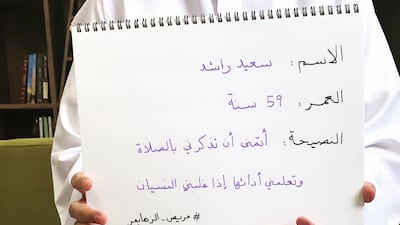 الاسم: سعيد راشد
العمر: 59 سنة
النصيحة: أتمنى أن تذكرني بالصلاة
وتعلمني أدائها إذا غلبني النسيان
#مريض_الزهايمر